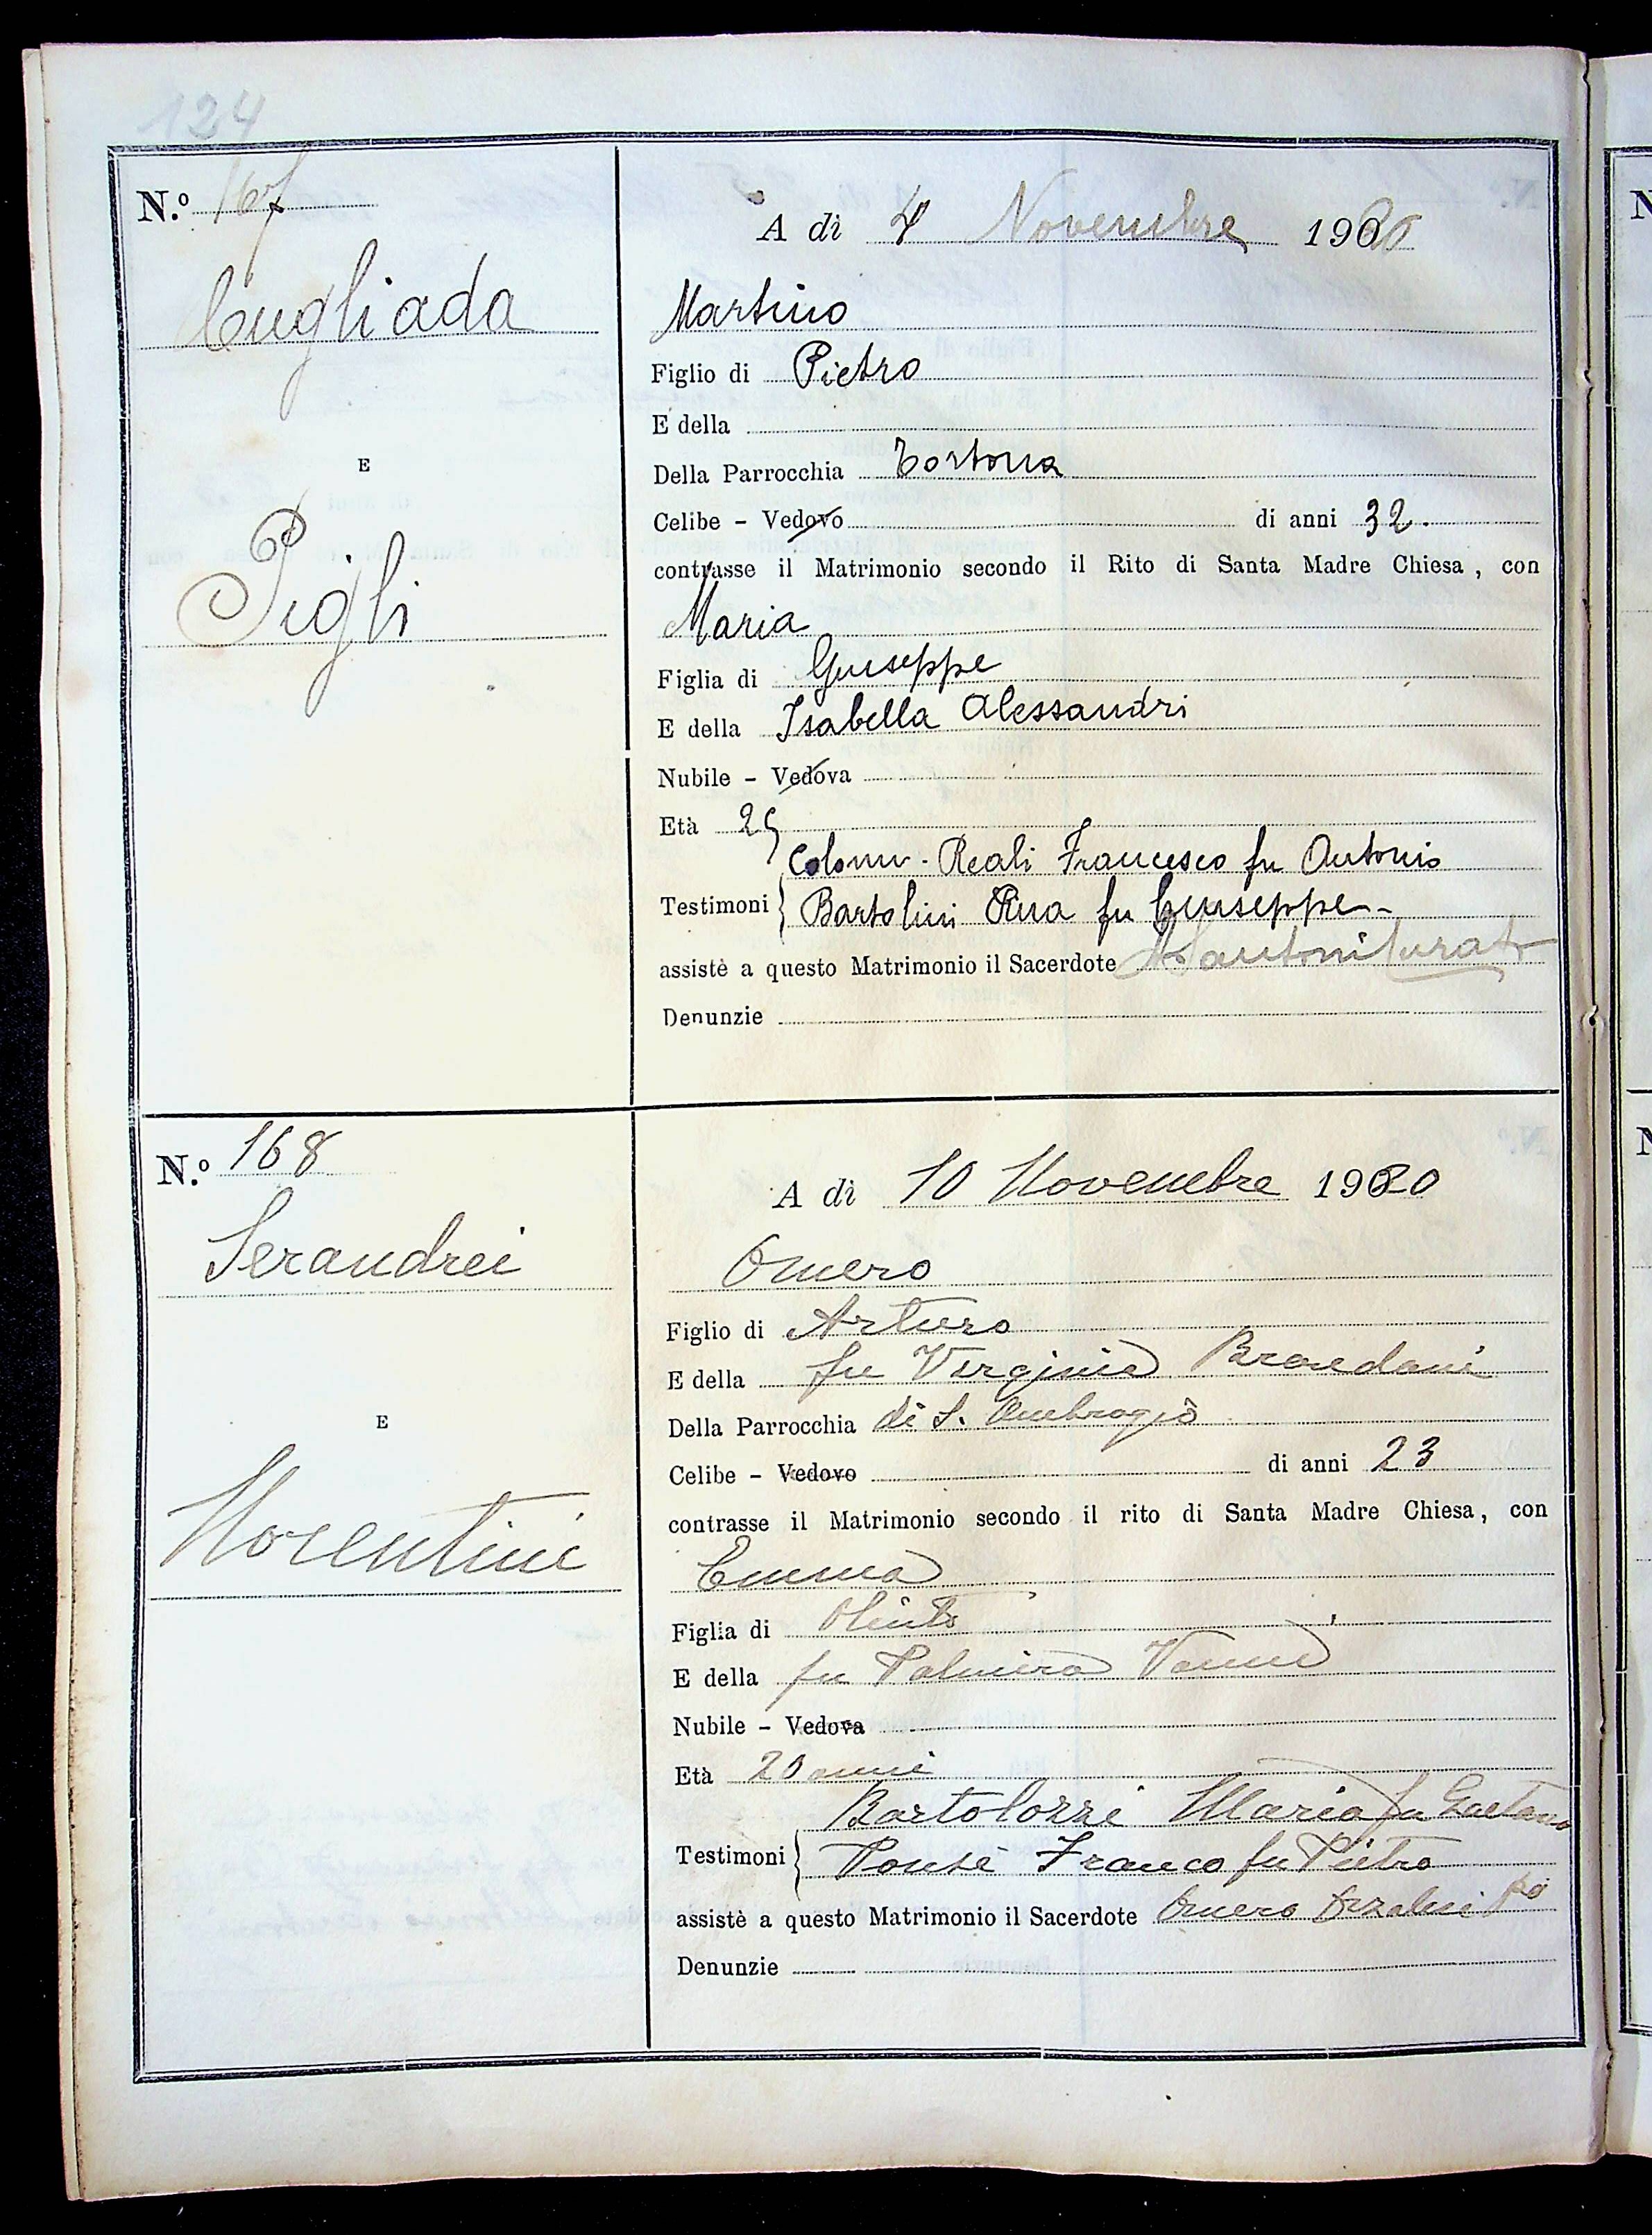 124
N.º 167
A dì 4 Novembre 1920
Cugliada
Martino
Figlio di Pietro
E della
Della Parrocchia Tortona
E
Celibe - Vedovo di anni 32.
contrasse il Matrimonio secondo il Rito di Santa Madre Chiesa, con
Pigli
Maria
Figlia di Giuseppe
E della Isabella Alessandri
Nubile - Vedova
Età 25
Reali Francesco fu Antonio
Testimoni Bartolini fu Giuseppe
assistè a questo Matrimonio il Sacerdote
Denunzie
N.º 168
A dì 10 Novembre 1920
Serandrei
Omero
Figlio di Arturo
E della fu Virginia Brandani
Della Parrocchia di S. Ambrogio
E
Celibe - Vedovo di anni 23
contrasse il Matrimonio secondo il rito di Santa Madre Chiesa, con
Norentini
Emma
Figlia di Olinto
E della fu Palmira Vanni
Nubile - Vedova
Età 20 anni
Bartolozzi Maria fu Gaetano
Testimoni Franco fu Pietro
assistè a questo Matrimonio il Sacerdote Omero
Denunzie